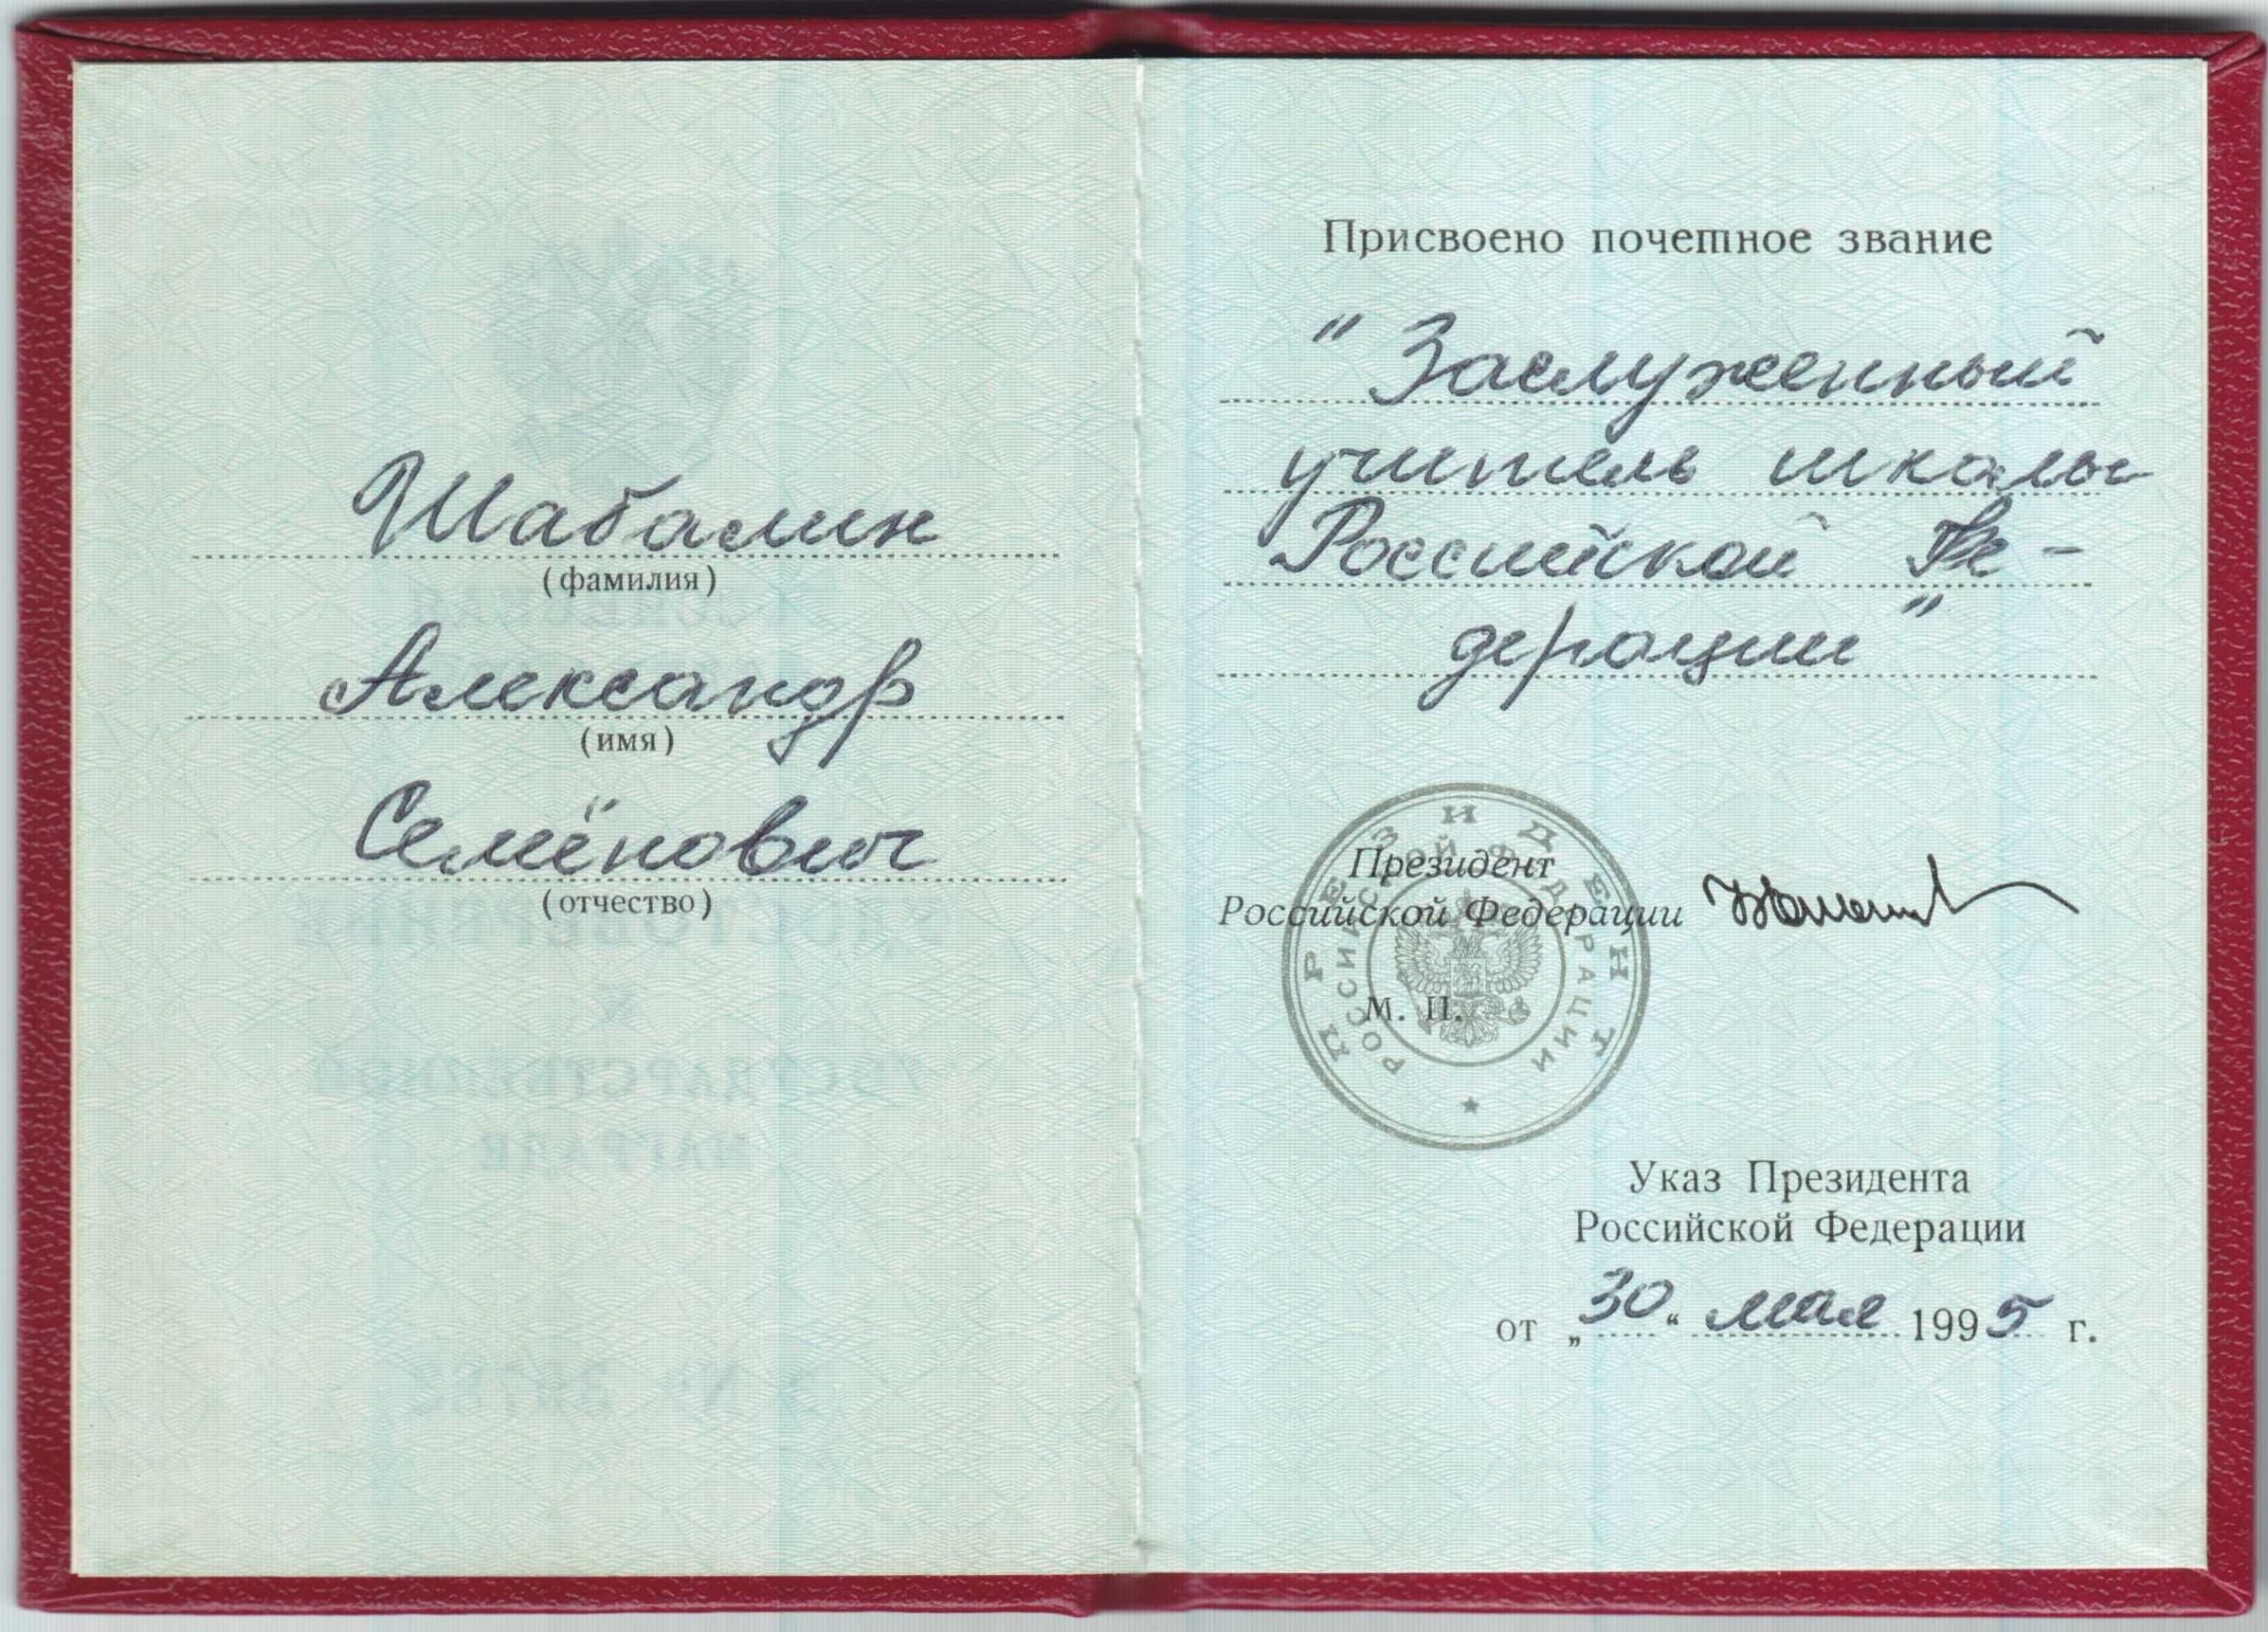 Шабалин
(фамилия)
Александр
(имя)
Семёнович
(отчество)
Присвоено почетное звание
"Заслуженный
учитель школы
Российской Фе-
дерации"
ПРЕЗИДЕНТ
РОССИЙСКОЙ ФЕДЕРАЦИИ
Президент
Российской Федерации
М. П.
Указ Президента
Российской Федерации
от „30“ мая 1995 г.